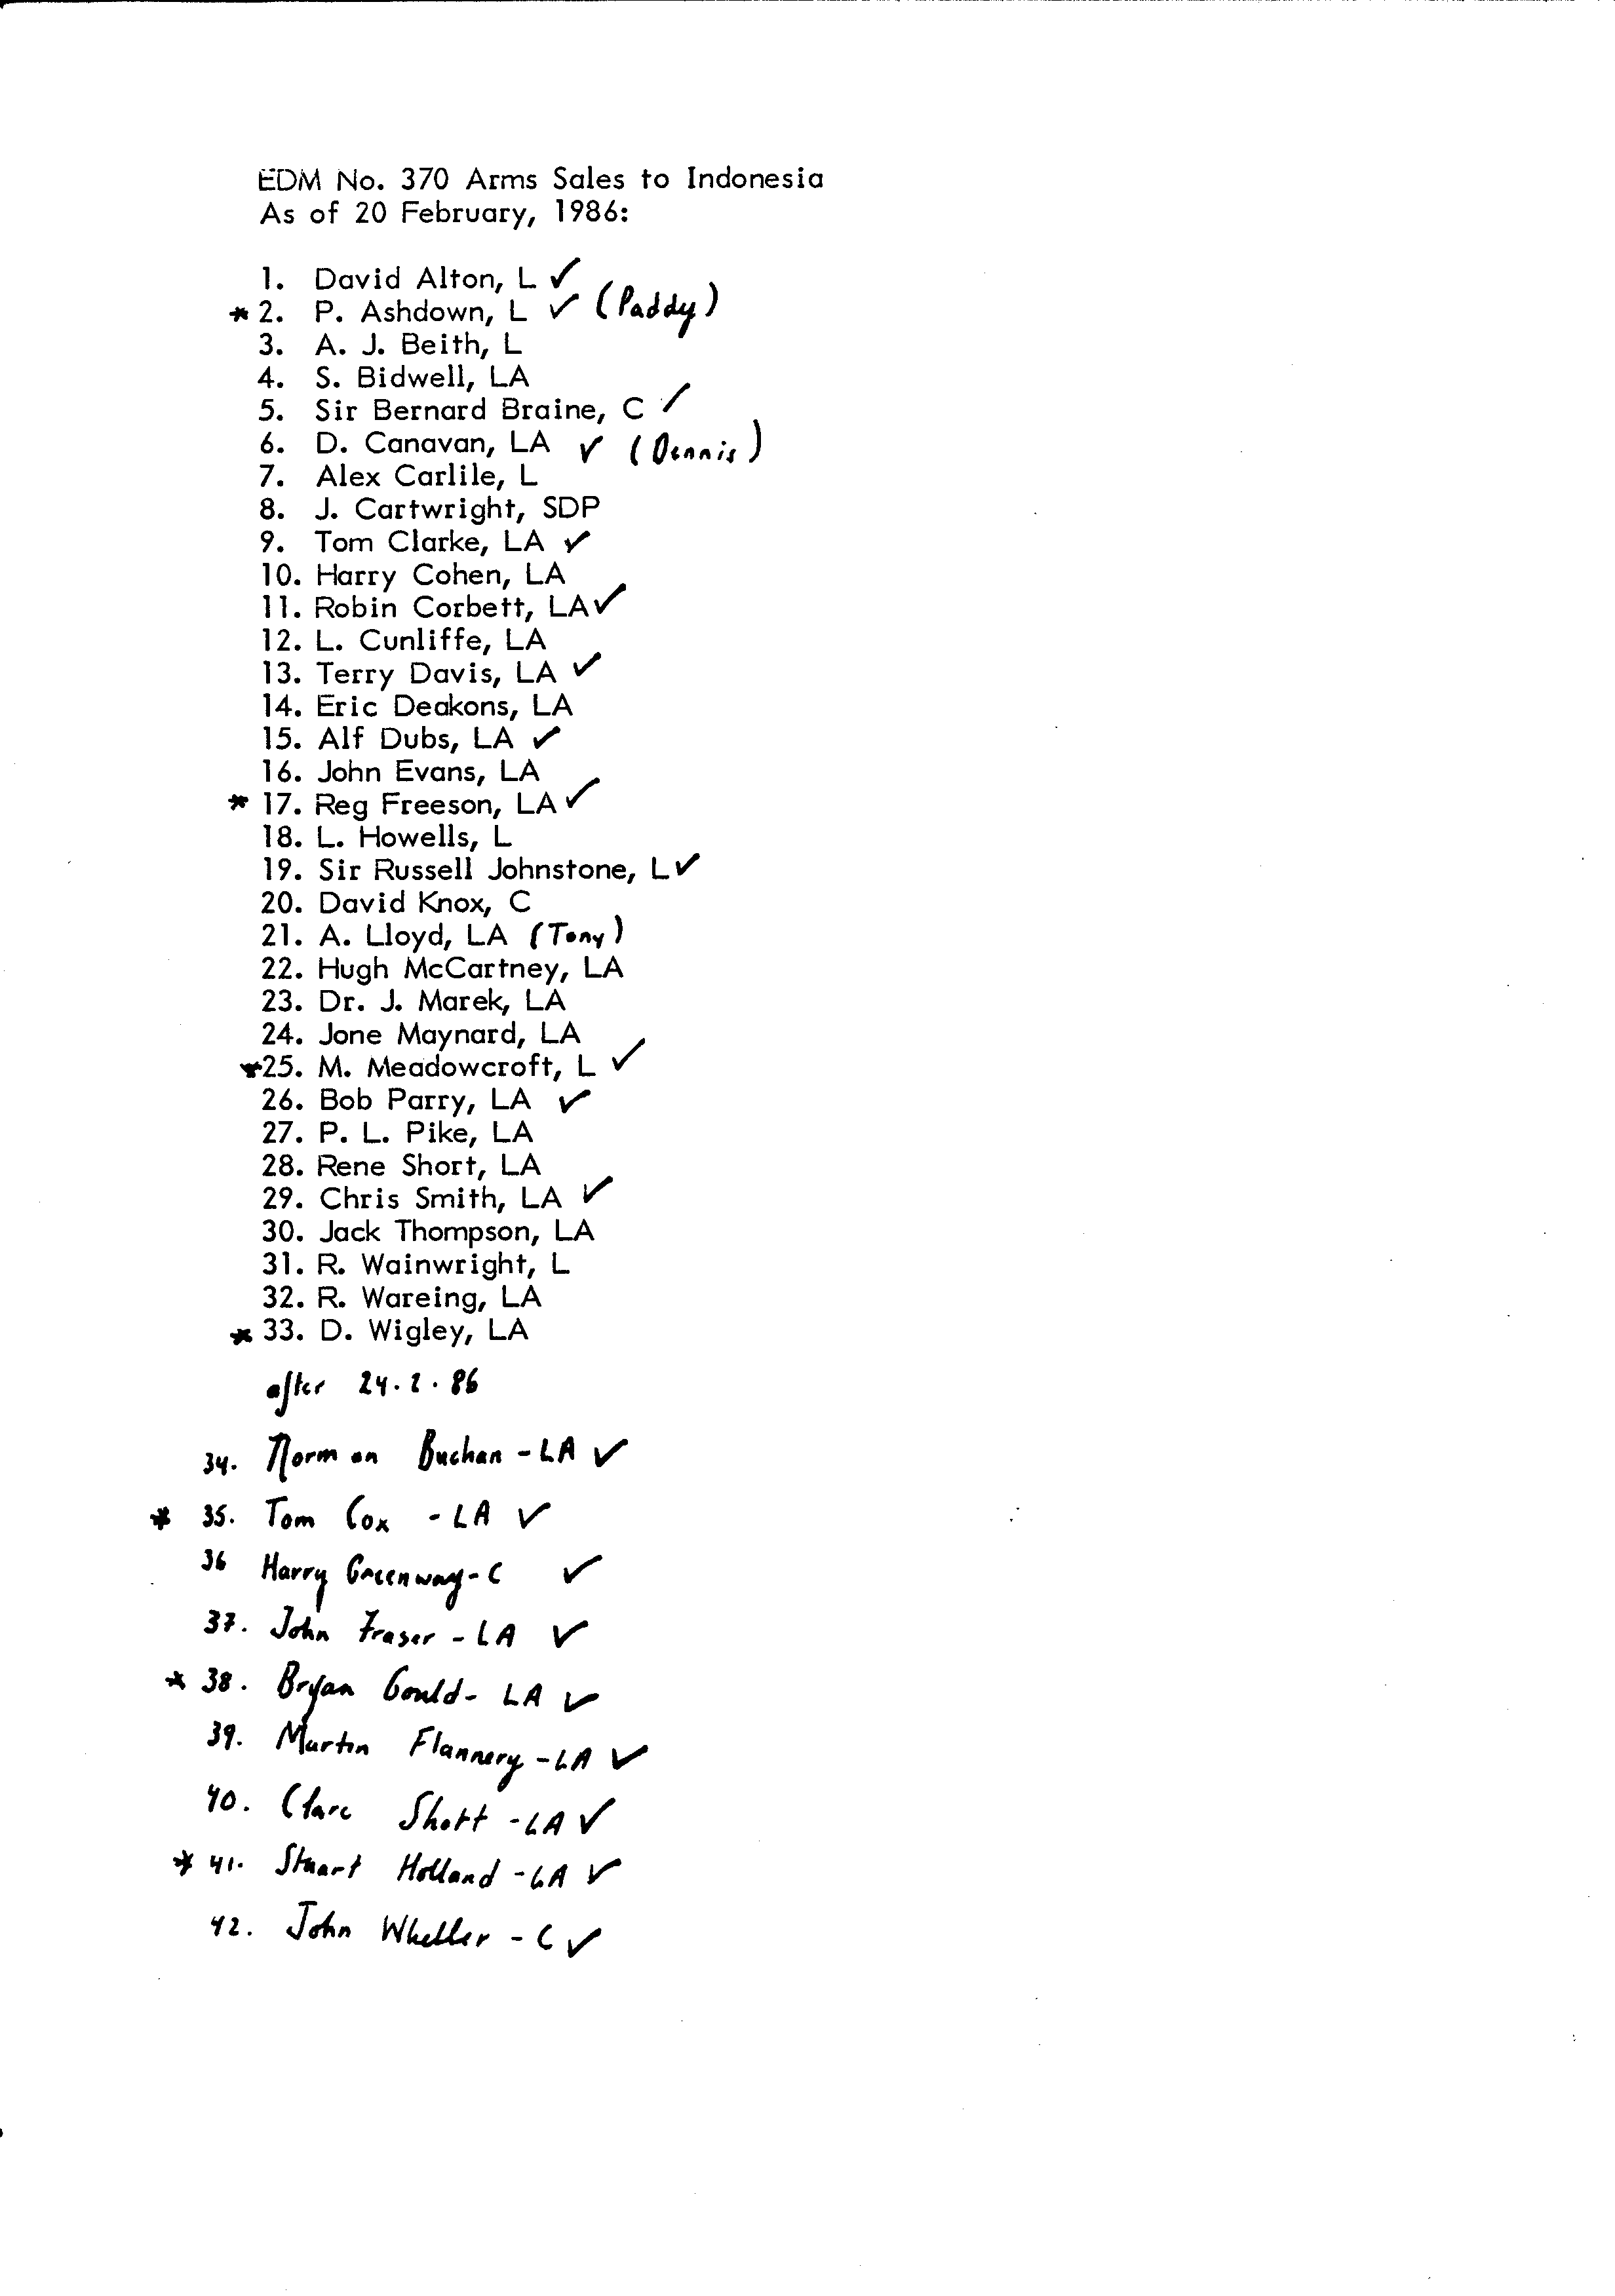 EDM No. 370 Arms Sales to Indonesia
As of 20 February, 1986:
1. David Alton, L ✓
* 2. P. Ashdown, L ✓ (Paddy)
3. A. J. Beith, L
4. S. Bidwell, LA
5. Sir Bernard Braine, C ✓
6. D. Canavan, LA ✓ (Dennis)
7. Alex Carlile, L
8. J. Cartwright, SDP
9. Tom Clarke, LA ✓
10. Harry Cohen, LA
11. Robin Corbett, LA ✓
12. L. Cunliffe, LA
13. Terry Davis, LA ✓
14. Eric Deakons, LA
15. Alf Dubs, LA ✓
16. John Evans, LA
* 17. Reg Freeson, LA ✓
18. L. Howells, L
19. Sir Russell Johnstone, L ✓
20. David Knox, C
21. A. Lloyd, LA (Tony)
22. Hugh McCartney, LA
23. Dr. J. Marek, LA
24. Jone Maynard, LA
* 25. M. Meadowcroft, L ✓
26. Bob Parry, LA ✓
27. P. L. Pike, LA
28. Rene Short, LA
29. Chris Smith, LA ✓
30. Jack Thompson, LA
31. R. Wainwright, L
32. R. Wareing, LA
* 33. D. Wigley, LA
after 24.2.86
34. Norman Buchan - LA ✓
* 35. Tom Cox - LA ✓
36 Harry Greenway - C ✓
37. John Fraser - LA ✓
* 38. Bryan Gould - LA ✓
39. Martin Flannery - LA ✓
40. Clare Short - LA ✓
* 41. Stuart Holland - LA ✓
42. John Wheller - C ✓